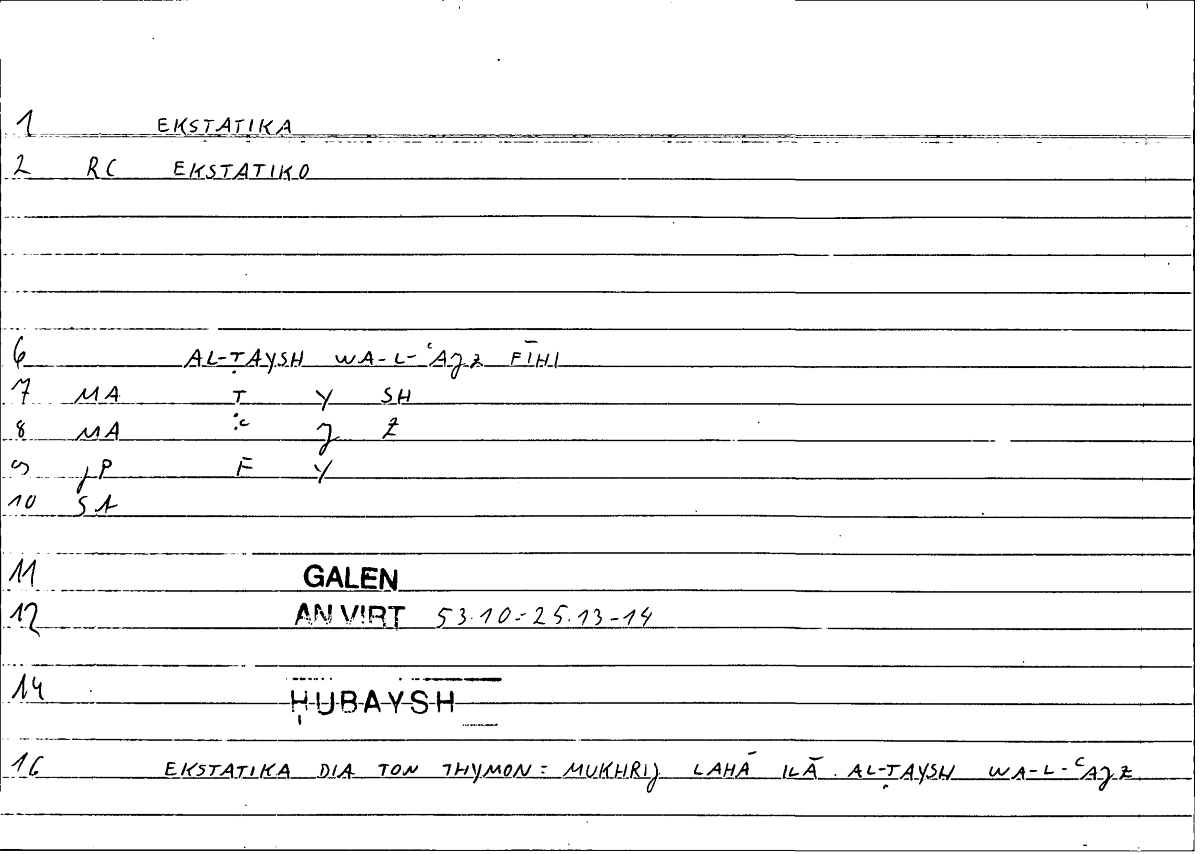 1 EKSTATIKA
2 RC EKSTATIKO
6 AL-ṬAYSH WA-L-ʿAJZ FĪHI
7 MA Ṭ Y SH
8 MA ʿ J Z
9 JP F Y
10 SA
11 GALEN
12 AN VIRT 53.10-25.13-14
14 ḤUBAYSH
16 EKSTATIKA DIA TON THYMON = MUKHRIJ LAHĀ ILĀ AL-ṬAYSH WA-L-ʿAJZ